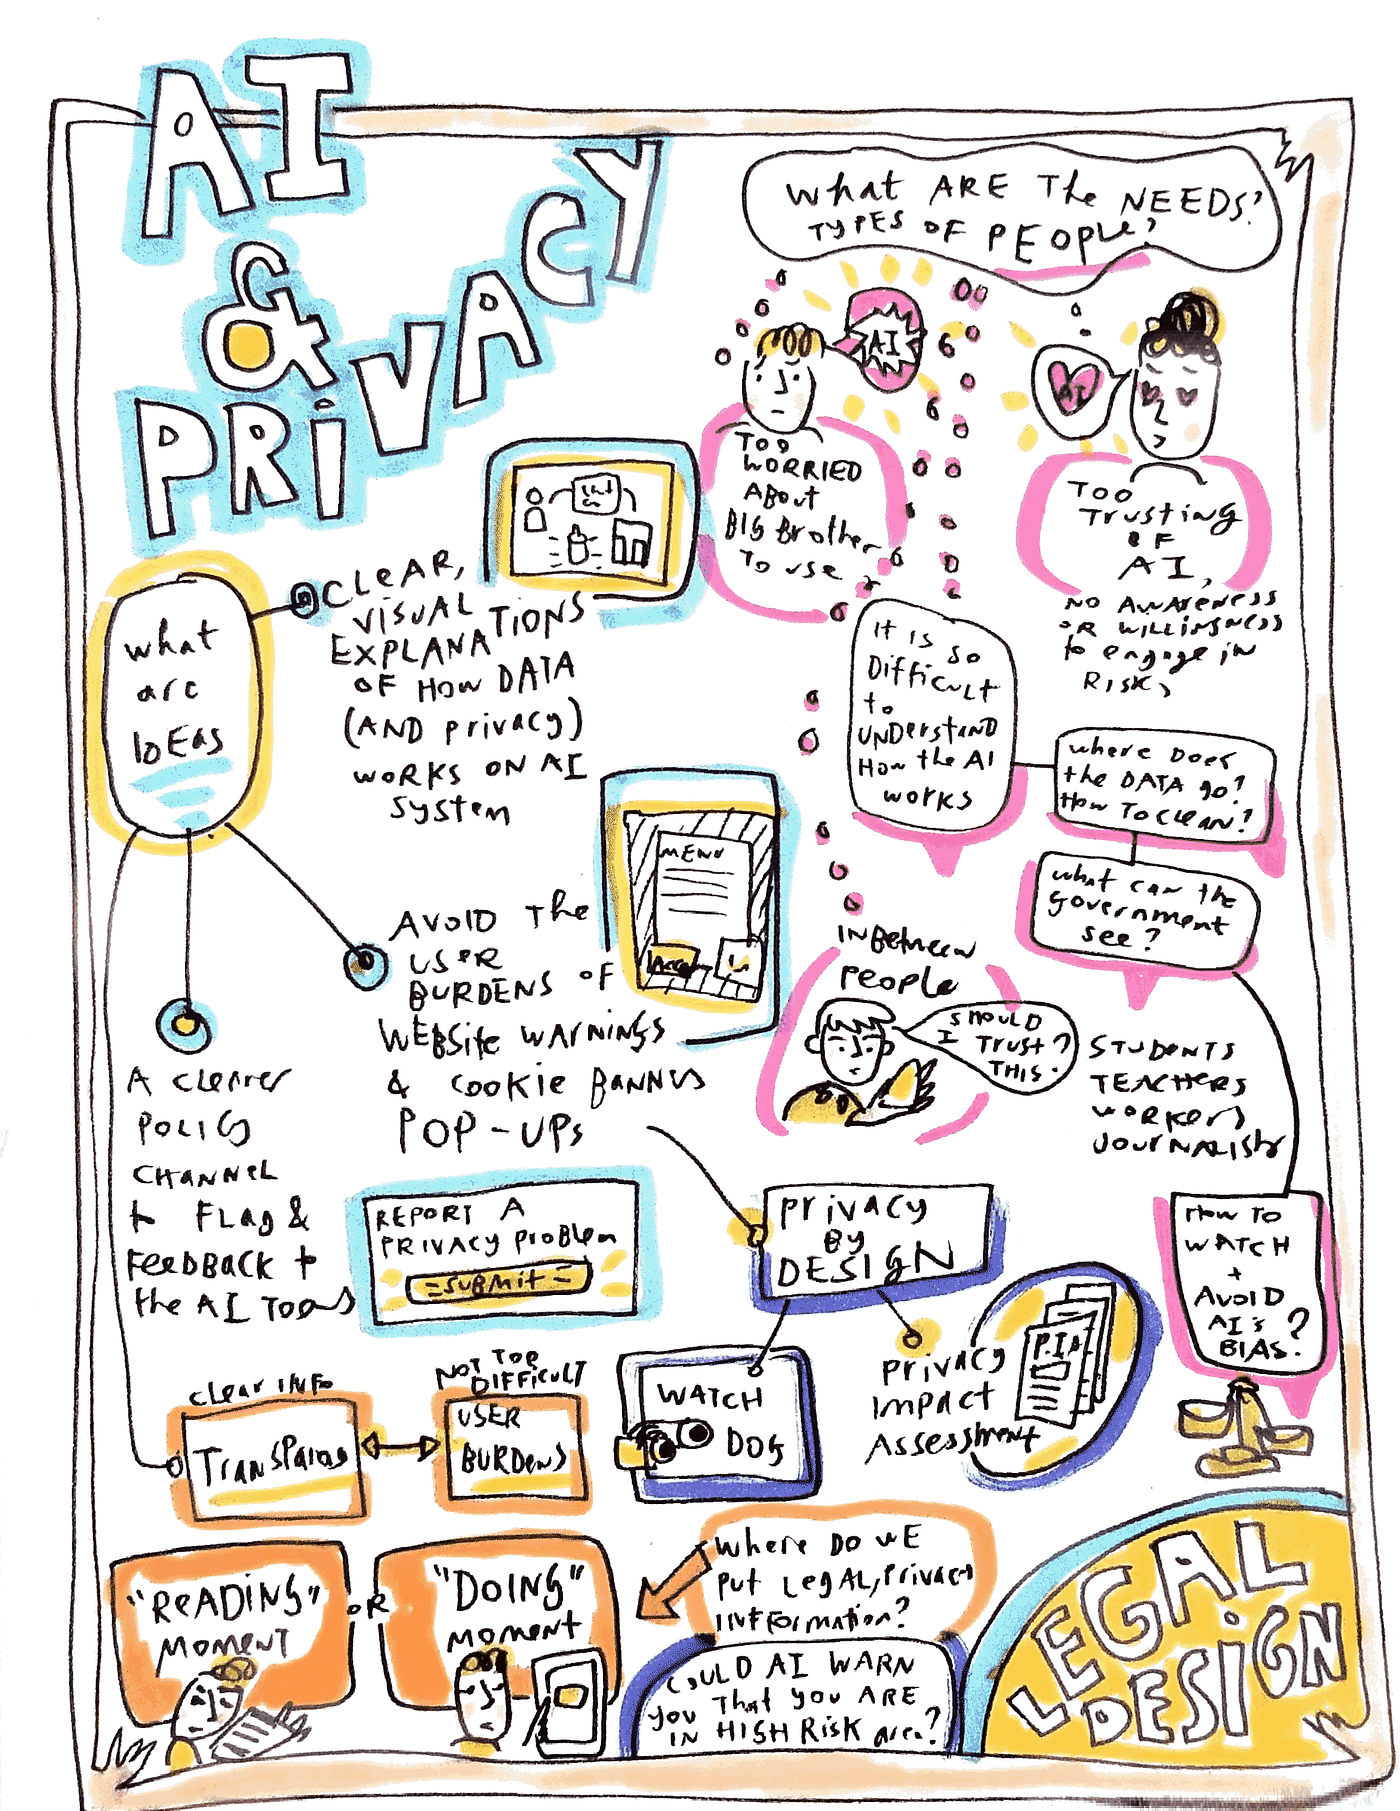 AI
&
PRIVACY
What ARE The NEEDS?
TYPES OF PEOPLE?
AI
AI
TOO
WORRIED
ABOUT
BIG BROTHER
TO USE
TOO
TRUSTING
OF
AI,
NO AWARENESS
OR WILLINGNESS
to engage in
RISKS
what
are
IDEAS
CLEAR,
VISUAL
EXPLANATIONS
OF HOW DATA
(AND privacy)
WORKS ON AI
SYSTEM
IT IS SO
Difficult
to
UNDERSTAND
HOW the AI
works
where DOES
the DATA go?
HOW TO CLEAN?
what can the
government
see?
MENU
AVOID The
USER
BURDENS OF
WEBSite WARNINGS
& COOKIE BANNERS
POP-UPs
INBETWEEN
PEOPLE
SHOULD
I TRUST
THIS?
STUDENTS
TEACHERS
WORKERS
JOURNALISTS
A cleaner
POLICY
CHANNEL
to FLAG &
FEEDBACK to
the AI TOOLS
REPORT A
PRIVACY problem
SUBMIT
PRIVACY
BY
DESIGN
HOW TO
WATCH
+
AVOID
AI's
BIAS?
WATCH
DOG
PRIVACY
IMPACT
ASSESSMENT
P.I.A
Clear INFO
TRANSPARENCY
NOT TOO
DIFFICULT
USER
BURDENS
"READING"
MOMENT
OR
"DOING"
MOMENT
WHERE DO WE
PUT LEGAL, PRIVACY
INFFORMATION?
COULD AI WARN
you THAT YOU ARE
IN HIGH RISK area?
LEGAL
DESIGN